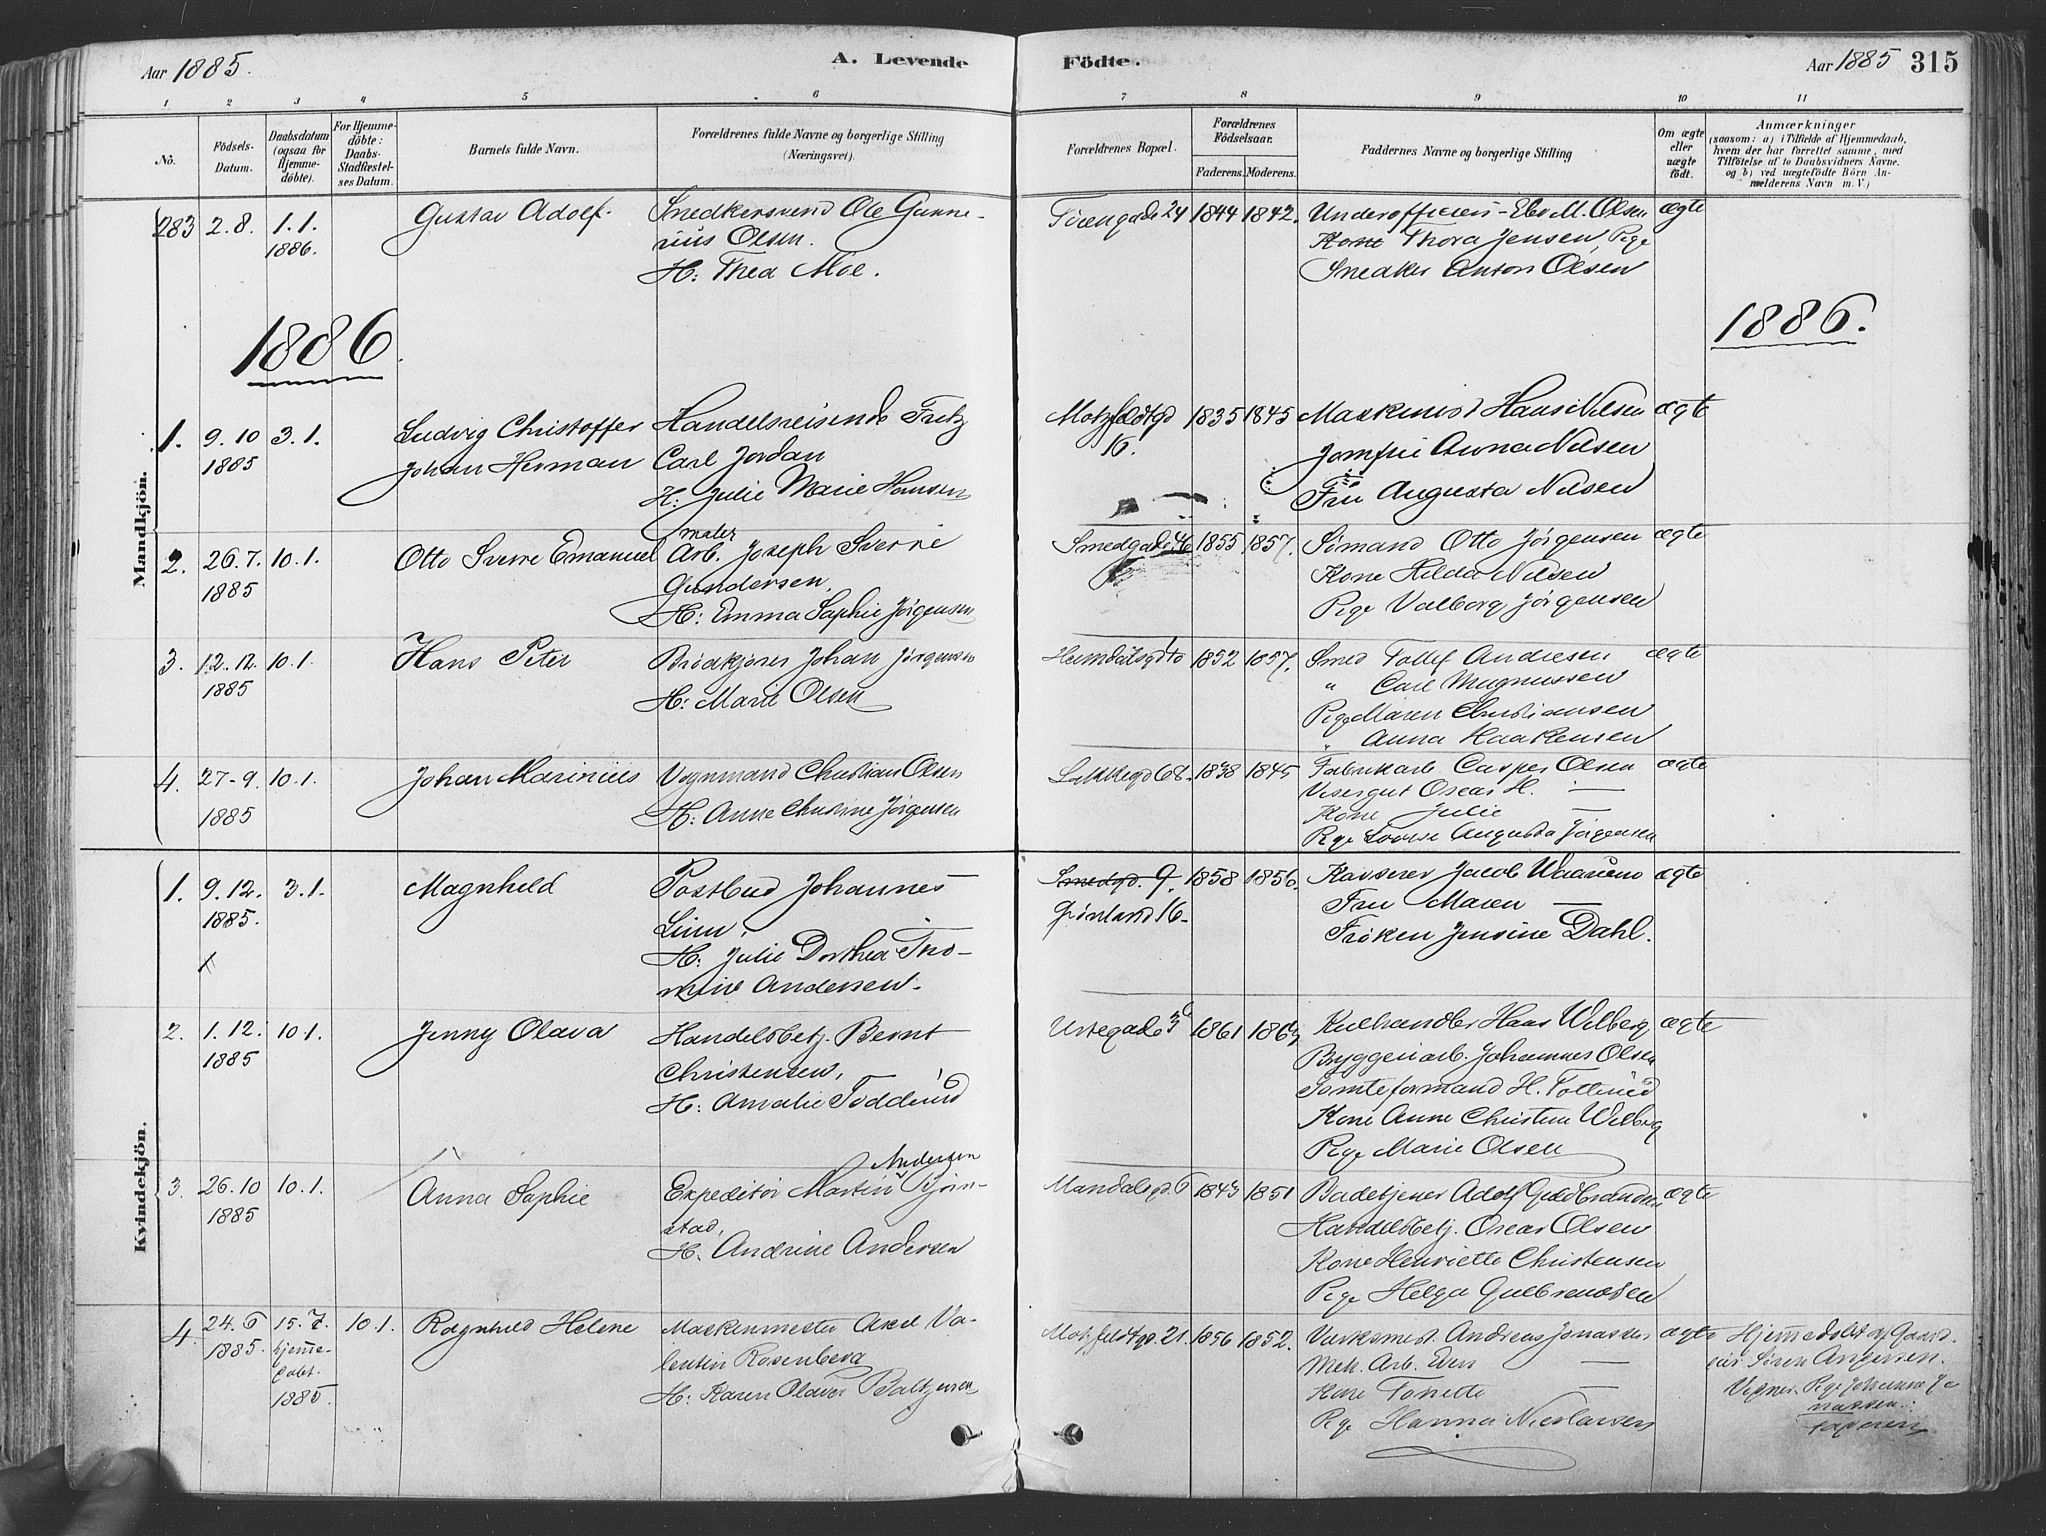 Aar 1885.
A. Levende
Födte.
Aar 1885 315
1 2 3 4 5 6 7 8 9 10 11
No.
Födsels-
Datum.
Daabsdatum
(ogsaa for
Hjemme-
döbte).
For Hjemme-
döbte:
Daabs-
Stadfæstel-
ses Datum.
Barnets fulde Navn.
Forældrenes fulde Navne og borgerlige Stilling
(Næringsvei).
Forældrenes Bopæl.
Forældrenes
Födselsaar.
Faderens. Moderens.
Faddernes Navne og borgerlige Stilling
Om ægte
eller
uægte
födt.
Anmærkninger
(saasom: a) i Tilfælde af Hjemmedaab,
hvem der har forrettet samme, med
Tilföielse af to Daabsvidners Navne.
og b) ved uægtefödte Börn An-
melderens Navn m. V.)
283 2.8. 1.1.
1886.
Gustav Adolf.
Snedkersvend Ole Gunne-
rius Olsen.
H: Thea Moe.
24 1844 1842.
Underofficer Olsen
Kone Thora Jensen, Pige
Snedker Anton Olsen
ægte
1886.
1886.
Mandkjön.
1. 9.10 3.1.
1885
Ludvig Christoffer
Johan Herman
Handelsreisende Fritz
Carl Jordan
H: Julie Marie Hansen
Motzfeldtgd
16.
1835 1845
Maskinist Hans Nilsen
Jomfru Anna Nilsen
Fru Augusta Nilsen
ægte
2. 26.7. 10.1.
1885
Otto Sverre Emanuel
maler
Arb. Joseph Sverre
Gundersen,
H: Emma Sophie Jörgensen
Smedgade 46 1855 1857.
Sömand Otto Jörgensen
Kone Hilda Nilsen
Pige Valborg Jörgensen
ægte
3. 12.12. 10.1.
1885
Hans Peter
Brödkjörer Johan Jörgensen
H: Marie Olsen
Heimdalsgd 10 1852 1857.
Smed Tollef Andresen
" Carl Magnussen
Pige Maren Christiansen
" Anna Haakensen
ægte
4. 27-9. 10.1.
1885
Johan Marinius
Vognmand Christian Olsen
H: Anne Christine Jörgensen
Lakkegd 68. 1838 1845
Fabrikarb. Casper Olsen
Visergut Oscar H. —
Kone Julie —
Pige Lovise Augusta Jörgensen
ægte
Kvindekjön.
1. 9.12. 3.1.
1885.
x
Magnhild
Postbud Johannes
Linn.
H: Julie Dorthea Tho-
mine Andersen.
Smedgd. 9.
Grönland 16.
1858 1856.
Kasserer Jacob Waarum
Fru Maren —
Fröken Jensine Dahl.
ægte
2. 1.12. 10.1.
1885
Jenny Olava
Handelsbetj. Bernt
Christensen,
H: Amalie Todderud
Urtegade 3 1861
Kulhandler Hans Wilberg
Bryggeriarb. Johannes Olsen
Tomteformand H. Tollerud
Kone Anne Christine Wilberg
Pige Marie Olsen
ægte
3. 26.10 10.1.
1885
Anna Sophie
Andersen
Expeditör Martin Björn-
stad,
H. Andrine Andersen
Mandalsgd. 6 1843 1851
Badetjener Adolf Guldbrandsen
Handelsbetj. Oscar Olsen
Kone Henriette Christensen
Pige Helga Gulbrandsen
ægte
4. 24.6 15.7. 10.1.
1885. hjemme-
döbt.
1885.
Ragnhild Helene
Maskinmester Axel Va-
lentin Rosenberg
H: Karen Olava Baltzersen
Motzfeldtgd. 21. 1856 1852.
Værksmest. Andreas Jonassen
Mek. Arb. Even —
Kone Tonette —
Pige Hanna Nicolaisen
ægte
Hjemmedöbt af Gaard-
eier Sören Angersen.
Vidner. Pige Johanne Jo-
nassen.